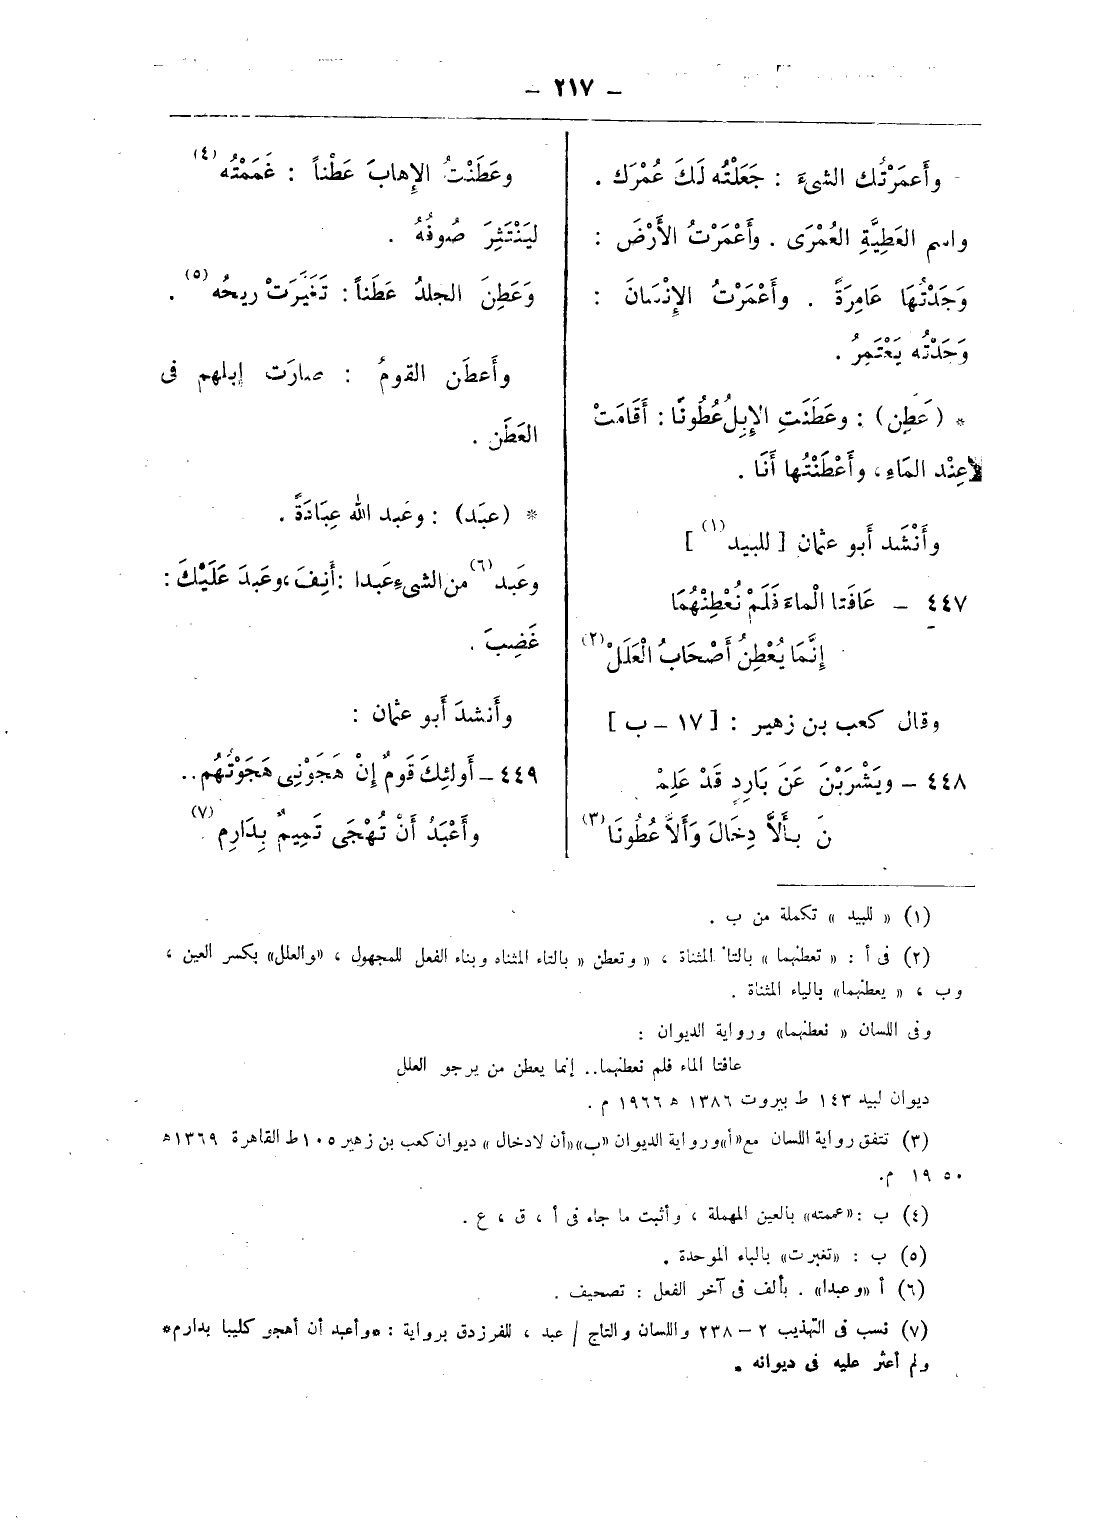 – ٢١٧ –
وأَعمَرْتُك الشىءَ : جَعَلْتُه لَكَ عُمْرَك .
واسم العَطِيَّةِ العُمْرَى . وأَعْمَرْتُ الأَرْضَ :
وَجَدْتُهَا عَامِرَةً . وأَعْمَرْتُ الإِنْسَانَ :
وَجَدْتُه يَعْتَمِرُ .
* ( عَطِن ) : وعَطَنَتِ الإِبِلُ عُطُونًا : أَقَامَتْ
عِنْد المَاءِ ، وأَعْطَنْتُها أَنَا .
وأَنْشَد أَبو عثمان [ للبيد (١) ]
٤٤٧ – عَافَتا الْماءَ فَلَمْ نُعْطِنْهُمَا
إِنَّمَا يُعْطِنُ أَصْحَابُ الْعَلَلْ (٢)
وقال كعب بن زهير : [ ١٧ – ب ]
٤٤٨ – ويَشْرَبْنَ عَنَ بَارِدٍ قَدْ عَلِمْ
نَ بِأَلاَّ دِخَالَ وَأَلاَّ عُطُونَا (٣)
وعَطَنْتُ الإِهابَ عَطْناً : غَمَمْتُه (٤)
ليَنْتَثِرَ صُوفُهُ .
وَعَطِنَ الجلدُ عَطَناً : تَغَيَرَتْ ريحُه (٥) .
وأَعطَن القومُ : صارَت إبلهم فى
العَطَن .
* (عبَد) : وعَبد الله عِبَادَةً .
وعَبِد (٦) من الشىءِ عَبدا : أَنِفَ ، وعَبدَ عَلَيْكَ :
غَضِبَ .
وأَنشدَ أَبو عثمان :
٤٤٩ – أَولئِكَ قَومٌ إِنْ هَجَوْنِى هَجَوْتُهُم ..
وأَعْبَدُ أَنْ تُهْجَى تَمِيمٌ بِدَارِمِ (٧)
(١) « للبيد » تكملة من ب .
(٢) فى أ : « تعطنهما » بالتاء المثناة ، « وتعطن « بالتاء المثناه وبناء الفعل للمجهول ، «والعلل» بكسر العين ،
وب ، « يعطنهما» بالياء المثناة .
وفى اللسان « نعطنهما» ورواية الديوان :
عافتا الماء فلم نعطنهما.. إنما يعطن من يرجو العلل
ديوان لبيد ١٤٣ ط بيروت ١٣٨٦ ه ١٩٦٦ م .
(٣) تتفق رواية اللسان مع «أ» ورواية الديوان «ب» «أن لادخال » ديوان كعب بن زهير ١٠٥ ط القاهرة ١٣٦٩ ه
١٩٥٠ م.
(٤) ب : «عممته» بالعين المهملة ، وأثبت ما جاء فى أ ، ق ، ع .
(٥) ب : «تغبرت» بالباء الموحدة .
(٦) أ «وعبدا» . بألف فى آخر الفعل : تصحيف .
(٧) نسب فى التهذيب ٢ – ٢٣٨ واللسان والتاج / عبد ، للفرزدق برواية : *وأعبد أن أهجو كليبا بدارم*
ولم أعثر عليه فى ديوانه .